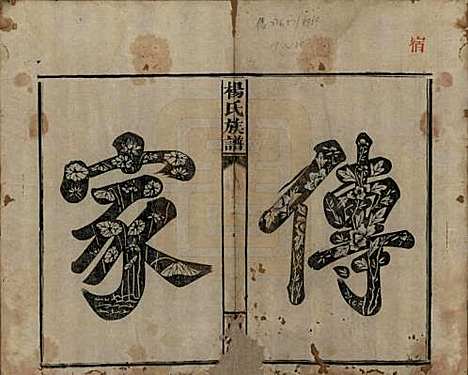 宿
傳
楊氏族譜
家